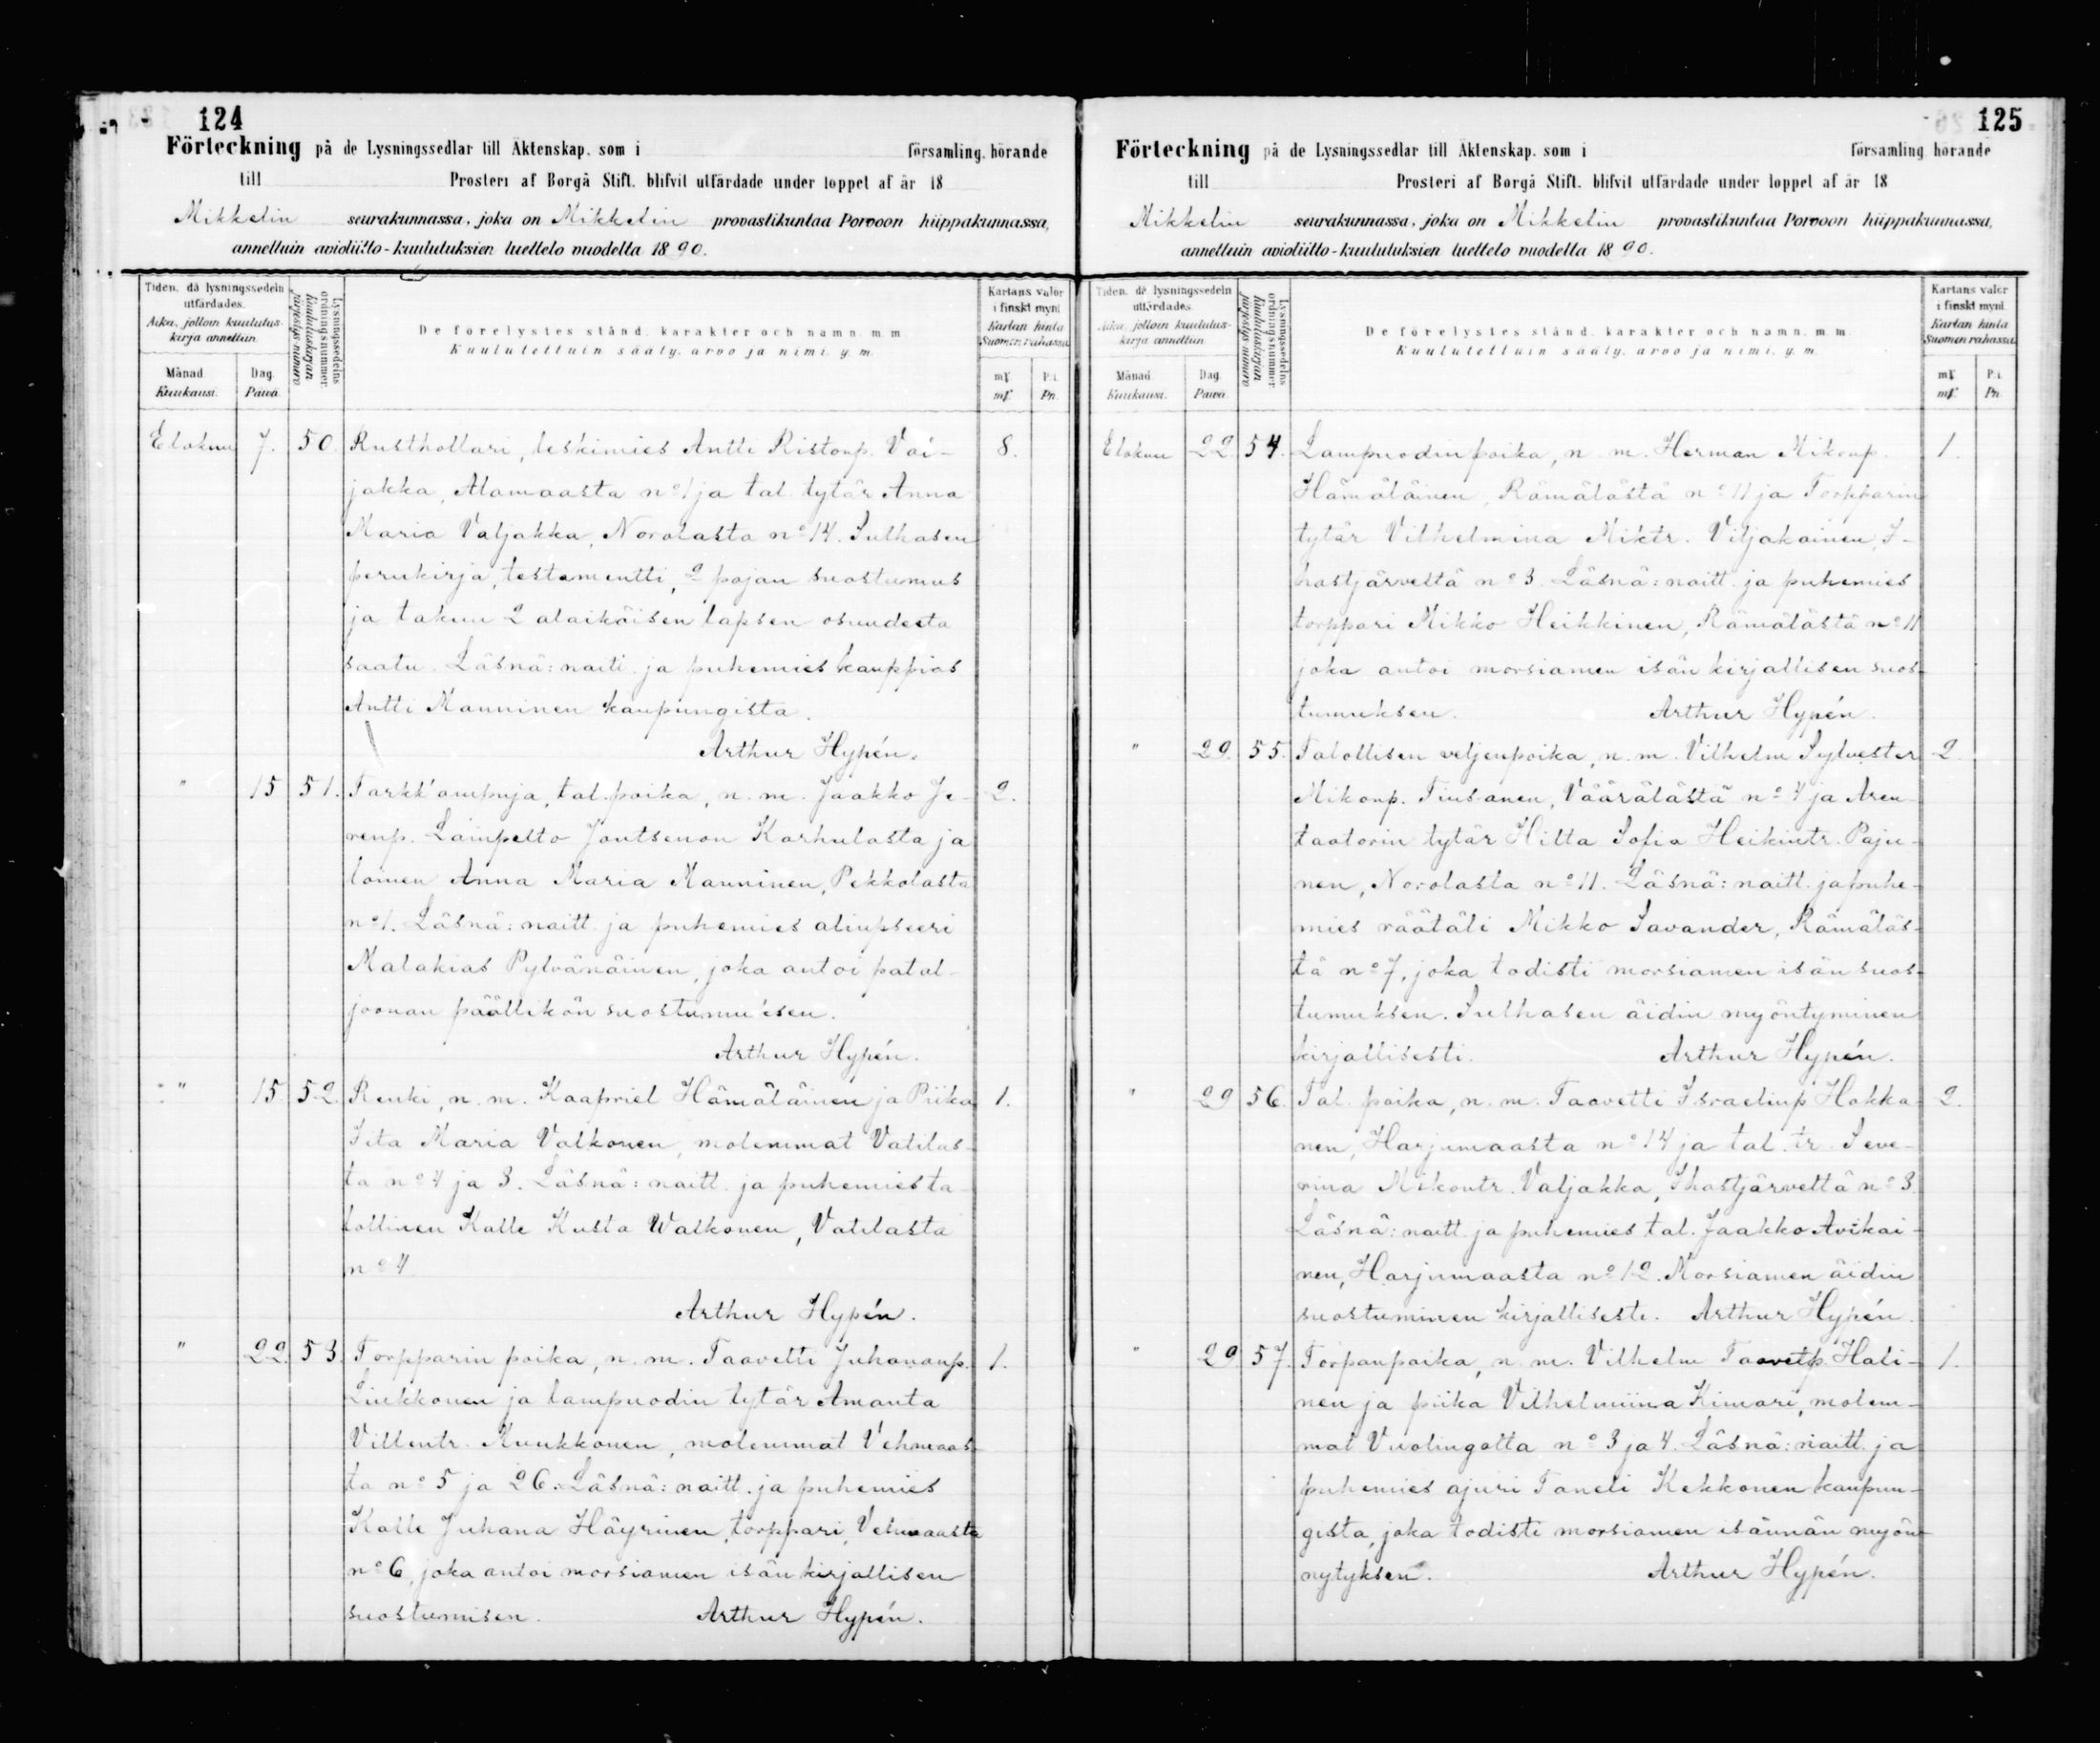 124
Förteckning på de Lysningssedlar till Äktenskap, som i församling, hörande
till Prosteri af Borgå Stift, blifvit utfärdade under loppet af år 18
Mikkelin seurakunnassa, joka on Mikkelin provastikuntaa Porvoon hiippakunnassa,
annettuin avioliitto-kuulutuksien luettelo vuodelta 1890.
Tiden, då lysningssedeln utfärdades.
Aika, jolloin kuulutus-kirja annettiin.
Månad. Kuukausi.
Dag. Päivä.
Lysningssedelns ordningsnummer.
Kuulutuskirjan järjestys-numero
De förelystes stånd, karakter och namn, m. m.
Kuulutettuin sääty, arvo ja nimi, y. m.
Kartans valör i finskt mynt.
Kartan hinta Suomen rahassa.
mk P:i.
mk Pn.
Elokuu 7. 50. Rusthollari, leskimies Antti Ristonp. Val- 8.
jakka, Alamaasta nº 1 ja tal. tytär Anna
Maria Valjakka, Norolasta nº 14. Sulhasen
perukirja, testamentti, 2 pojan suostumus
ja takuu 2 alaikäisen lapsen osuudesta
saatu. Läsnä: naitt. ja puhemies kauppias
Antti Manninen kaupungista.
Arthur Hypén.
" 15 51. Tarkk'ampuja, tal. poika, n. m. Jaakko Je- 2.
renp. Lampelto Joutsenon Karhulasta ja
loinen Anna Maria Manninen, Pekkolasta
nº 1. Läsnä: naitt. ja puhemies aliupseeri
Malakias Pylvänäinen, joka antoi patal-
joonan päällikön suostumu'sen.
Arthur Hypén.
" 15. 52. Renki, n. m. Kaapriel Hämäläinen ja Piika 1.
Iita Maria Valkonen, molemmat Vatilas-
ta nº 4 ja 3. Läsnä: naitt. ja puhemies ta-
lollinen Kalle Kusta Walkonen, Vatilasta
nº 4
Arthur Hypén.
" 22. 53. Torpparin poika, n. m. Taavetti Juhananp. 1.
Liukkonen ja lampuodin tytär Amanta
Villentr. Muukkonen, molemmat Vehmaas-
ta nº 5 ja 26. Läsnä: naitt. ja puhemies
Kalle Juhana Häyrinen, torppari, Vehmaasta
nº 6, joka antoi morsiamen isän kirjallisen
suostumisen. Arthur Hypén.
125
Förteckning på de Lysningssedlar till Äktenskap, som i församling hörande
till Prosteri af Borgå Stift, blifvit utfärdade under loppet af år 18
Mikkelin seurakunnassa, joka on Mikkelin provastikuntaa Porvoon hiippakunnassa,
annettuin avioliitto-kuulutuksien luettelo vuodelta 1890.
Tiden, då lysningssedeln utfärdades.
Aika, jolloin kuulutus-kirja annettiin.
Månad. Kuukausi.
Dag. Päivä.
Lysningssedelns ordningsnummer.
Kuulutuskirjan järjestys-numero
De förelystes stånd, karakter och namn, m. m.
Kuulutettuin sääty, arvo ja nimi, y. m.
Kartans valör i finskt mynt.
Kartan hinta Suomen rahassa.
mk P:i.
mk Pn.
Elokuu 22 54. Lampuodinpoika, n. m. Herman Mikonp. 1.
Hämäläinen, Rämälästä nº 11 ja Torpparin
tytär Vilhelmina Miktr. Viljakainen, I-
hastjärveltä nº 3. Läsnä: naitt. ja puhemies
torppari Mikko Heikkinen, Rämälästä nº 11
joka antoi morsiamen isän kirjallisen suos-
tumuksen. Arthur Hypén.
" 29. 55. Talollisen veljenpoika, n. m. Vilhelm Sylvester 2.
Mikonp. Tiusanen, Väärälästä nº 4 ja Aren-
taatorin tytär Hilta Sofia Heikintr. Paju-
nen, Norolasta nº 11. Läsnä: naitt. ja puhe-
mies räätäli Mikko Savander, Rämäläs-
tä nº 7, joka todisti morsiamen isän suos-
tumuksen. Sulhasen äidin myöntyminen
kirjallisesti. Arthur Hypén.
" 29 56. Tal. poika, n. m. Taavetti Israelinp. Hokka- 2.
nen, Harjumaasta nº 14 ja tal. tr. Seve-
rina Mikontr. Valjakka, Ihastjärveltä nº 3.
Läsnä: naitt. ja puhemies tal. Jaakko Avikai-
nen, Harjumaasta nº 12. Morsiamen äidin
suostuminen kirjallisesti. Arthur Hypén.
" 29 57. Torpanpoika, n. m. Vilhelm Taavetp. Hali- 1.
nen ja piika Vilhelmiina Kimari, molem-
mat Vuolingolta nº 3 ja 4. Läsnä: naitt. ja
puhemies ajuri Taneli Kekkonen kaupun-
gista, joka todisti morsiamen isännän myön-
nytyksen. Arthur Hypén.